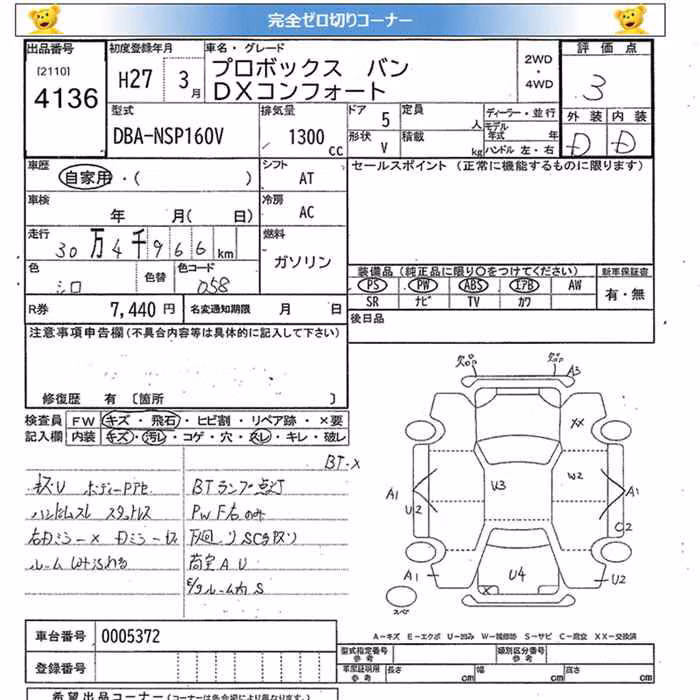 完全ゼロ切りコーナー
出品番号 初度登録年月 車名・グレード 2WD・4WD 評価点
[2110] 4136 H27 3月 プロボックス バン DXコンフォート 3
型式 排気量 ドア 5 定員 人 ディーラー・並行 外装 内装
DBA-NSP160V 1300cc 形状 V 積載 kg モデル年式 年 ハンドル 左・右 D D
車歴 自家用・( ) シフト AT セールスポイント (正常に機能するものに限ります)
車検 年 月( 日) 冷房 AC
走行 30万4千966km 燃料 ガソリン
色 シロ 色替 色コード 058 装備品(純正品に限り○をつけてください) 新車保証書
PS PW ABS エアB AW 有・無
SR ナビ TV カワ
R券 7,440円 名変通知期限 月 日 後日品
注意事項申告欄(不具合内容等は具体的に記入して下さい)
修復歴 有〔箇所 〕
検査員記入欄 FW キズ・飛石・ヒビ割・リペア跡・×要
内装 キズ・汚レ・コゲ・穴・スレ・キレ・破レ
BT-X
キズU BTランプ点灯
ハンドルスレ スタッドレス PW F右のみ
下廻り SC
荷室AU
E/gルーム内S
欠品 欠品 A3
XX
A1 U2 U3 W2 A1
C2
A1 X U4 U2
スペ
A-キズ E-エクボ U-凹み W-補修跡 S-サビ C-腐食 XX-交換済
車台番号 0005372 型式指定番号 参考 類別区分番号 参考
登録番号 長さ cm 幅 cm 高さ cm
希望出品コーナー